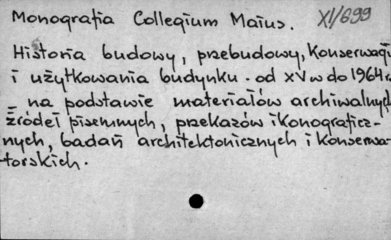 Monografia Collegium Maius. XI/699
Historia budowy, przebudowy, Konserwacji
i użytkowania budynku. od XV w do 1964 r.
= na podstawie materiałów archiwalnych
źródeł pisemnych, przekazów ikonograficz-
nych, badań architektonicznych i konserwa-
torskich.